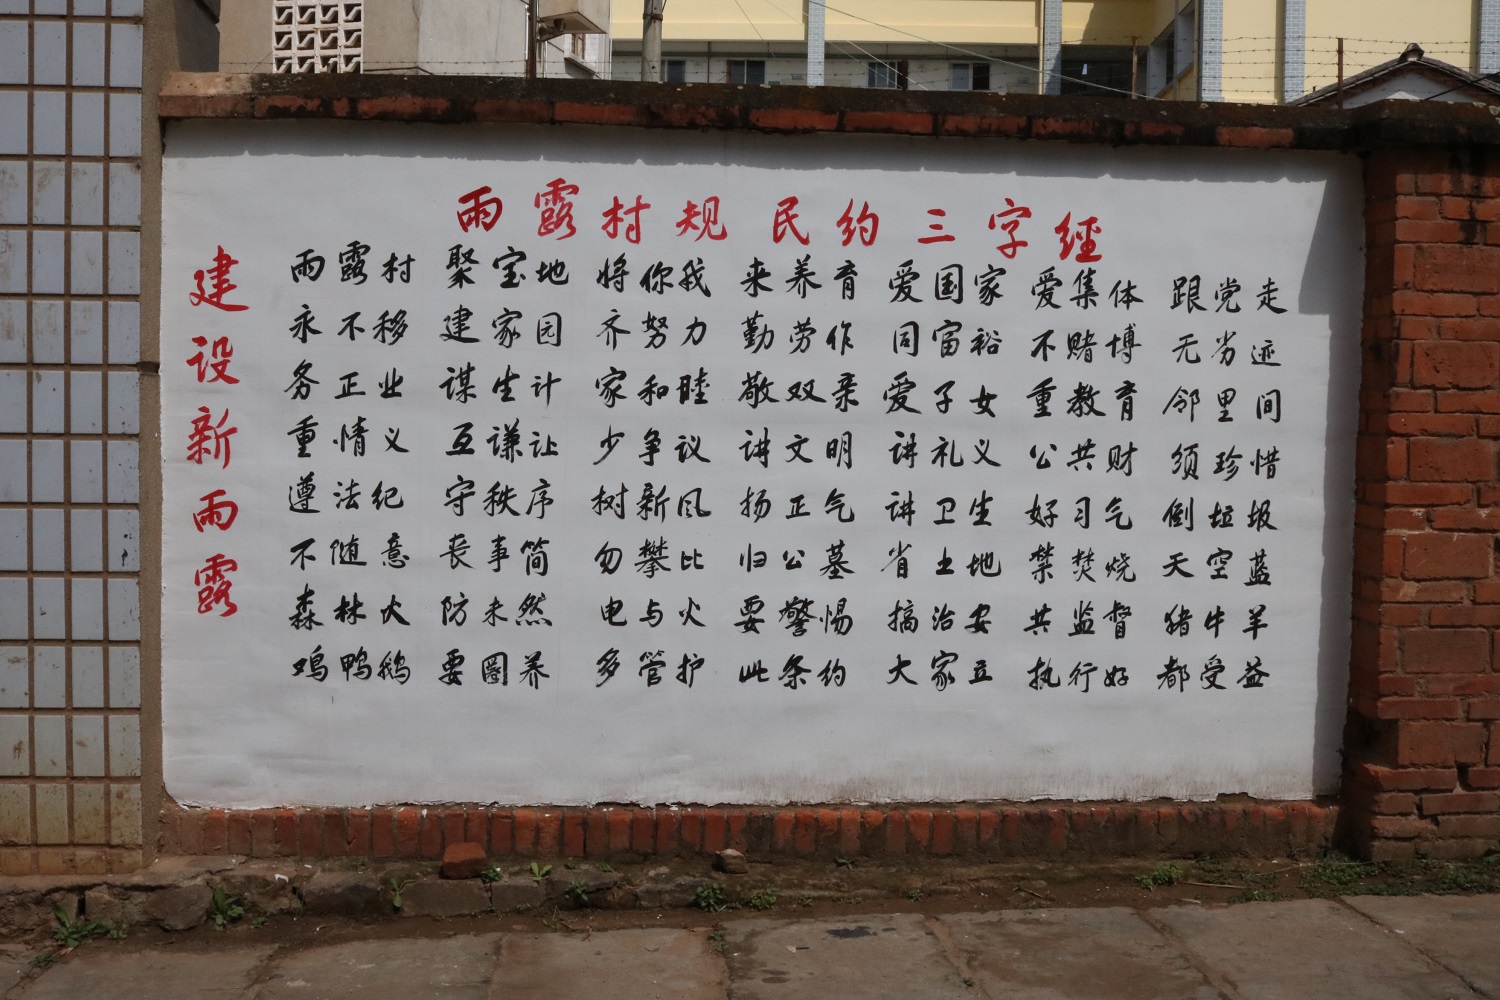 雨露村规民约三字经
建设新雨露
雨露村 聚宝地 将你我 来养育 爱国家 爱集体 跟党走
永不移 建家园 齐努力 勤劳作 同富裕 不赌博 无劣迹
务正业 谋生计 家和睦 敬双亲 爱子女 重教育 邻里间
重情义 互谦让 少争议 讲文明 讲礼义 公共财 须珍惜
遵法纪 守秩序 树新风 扬正气 讲卫生 好习气 倒垃圾
不随意 丧事简 勿攀比 归公墓 省土地 禁焚烧 天空蓝
森林火 防未然 电与火 要警惕 搞治安 共监督 猪牛羊
鸡鸭鹅 要圈养 多管护 此条约 大家立 执行好 都受益